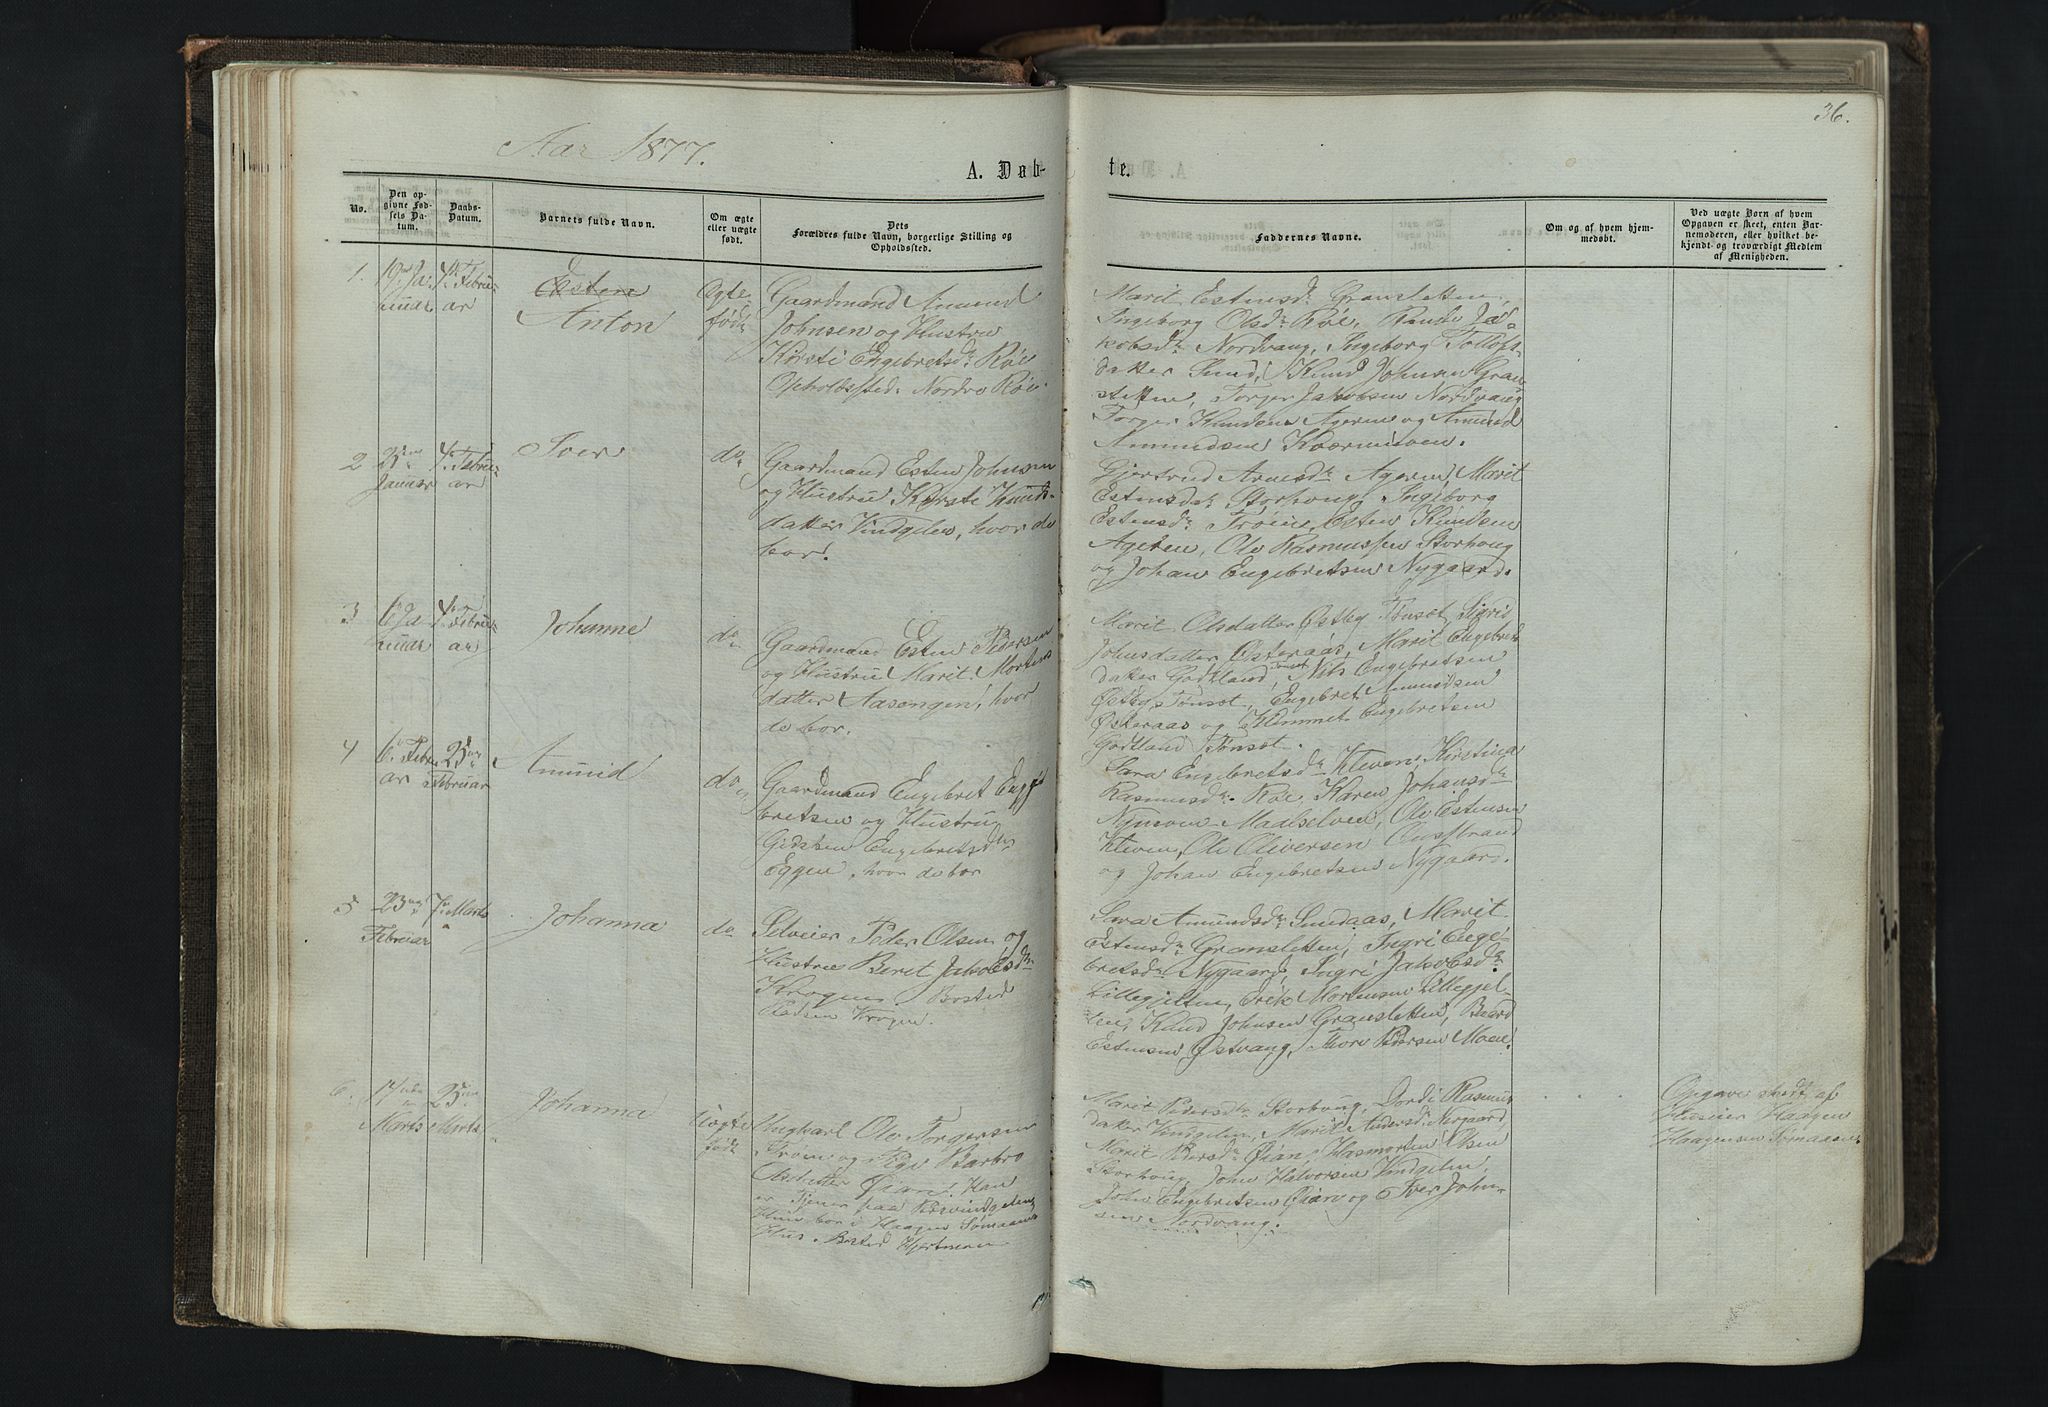 36.
Aar 1877.
A. Døb-
te.
No.
Den op-
givne Fød-
sels Da-
tum.
Daabs-
Datum.
Barnets fulde Navn.
Om ægte
eller uægte
født.
Dets
Forældres fulde Navn, borgerlige Stilling og
Opholdssted.
Faddernes Navne.
Om og af hvem hjem-
medøbt.
Ved uægte Børn af hvem
Opgaven er skeet, enten Bar-
nemoderen, eller hvilket be-
kjendt og troværdigt Medlem
af Menigheden.
1.
19 Ja-
nuar
4 Febru-
ar
Esten
Anton
Ægte
født
Gaardmand Amund
Johnsen og Hustru
Kirsti Engebretsdr Røe
Opholdssted: Nordre Røe.
Marit Estensdr Gransletten,
Ingeborg Olsdr Røe, Ja-
kobsdr Nordvang, Ingeborg
datter Knud Johnsen Gran-
sletten, Torger Jakobsen Nordvang
Torger Knudsen Ageren og Amund
Amundsen
2
25
Januar
4 Febru-
ar
Iver
do
Gaardmand Esten Johnsen
og Hustru Kirsti Knuds-
datter Vindgelen, hvor de
bor.
Gjertrud Arnesdr Ageren, Marit
Estensdr Storhoug, Ingeborg
Estensdr Trøen, Esten Knudsen
Ageren, Ole Rasmussen Storhoug
og Johan Engebretsen Nygaard.
3
6 Ja-
nuar
4 Febru-
ar
Johanne
do
Gaardmand Esten Pedersen
og Hustru Marit Mortens
datter Aasengen, hvor
de bor.
Marit Olsdatter Østby Tønset, Sigrid
Johnsdatter Østeraas, Marit Engebrets
datter Godtland, Nils Engebretsen
Østby Tønset, Engebret Amundsen
Østeraas og Hemmet Engebretsen
Godtland Tønset.
4
6 Febru
ar
25
Februar
Amund
do
Gaardmand Engebret Enge
bretsen og Hustru
Engebretsdr
Eggen, hvor de bor
Sara Engebretsdr Kleven, Kirstina
Rasmusdr Røe, Karen Johansdr
Maalselven, Ole Estensen
Kleven, Ole Oliversen
og Johan Engebretsen Nygaard.
5
23
Februar
Marts
Johanna
do
Selveier Peder Olsen og
Hustru Beret Jakobsdr
Krogen Bosted
Krogen.
Sara Amundsdr Sundaas, Marit
Estensdr Gransletten, Ingri Enge-
bretsdr Nygaard, Ingri Jakobsdr
Lillegjelten, Erik Mortensen Lillegjel
ten, Knud Johnsen Gransletten, Baard
Estensen Østvang, Thore Pedersen Moen.
6.
17
Marts
25
Marts
Johanna
Uægte
født
Ungkarl Ole Torgersen
Trøen og Pige Barbro
Olsdatter Øian. Han
er Tjener paa
Hun bor i Haagen
Hus. Bosted
Marit Pedersdr Storhoug, Dordi Rasmus
datter Vindgelen, Marit Andersdr
Marit Pedersdr Øian, Olsen
Storhoug, John Halvorsen Vindgelen,
John Engebretsen Øian og Iver John-
sen Nordvang.
Opgaven skedt af
Huseier Haagen
Haagensen